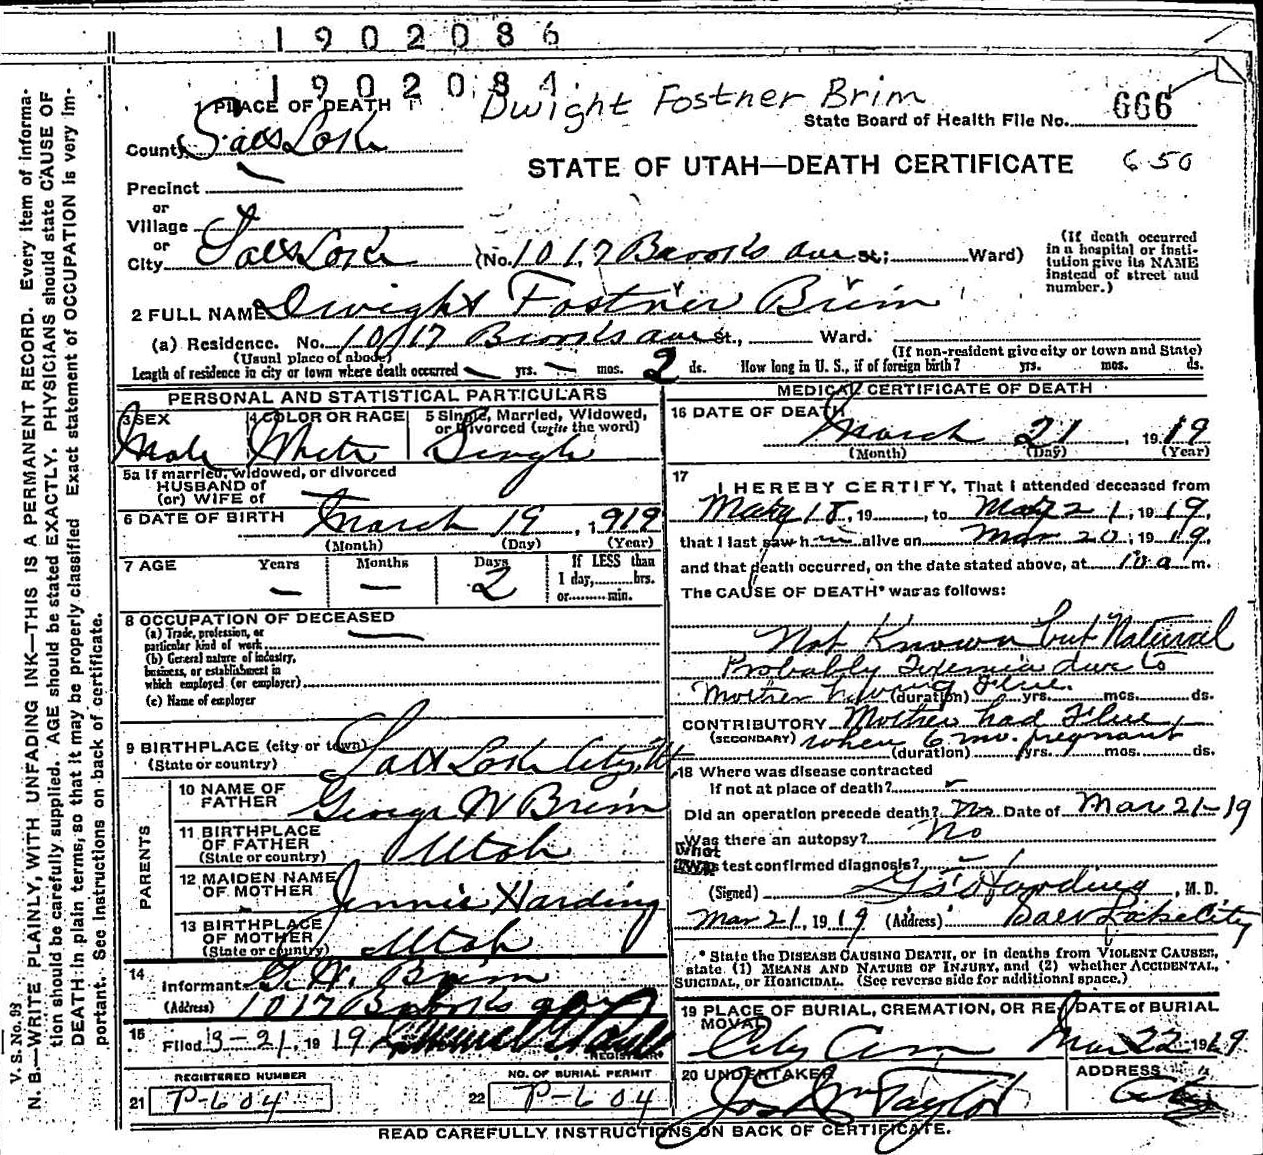 1902086
1902084
Dwight Fostner Brim
1 PLACE OF DEATH
State Board of Health File No. 666
County Salt Lake
STATE OF UTAH—DEATH CERTIFICATE 650
Precinct
or
Village
or
City Salt Lake (No. 1017 Brooks ave St; Ward)
(If death occurred in a hospital or institution give its NAME instead of street and number.)
2 FULL NAME Dwight Fostner Brim
(a) Residence. No. 1017 Brooks ave St., Ward.
(Usual place of abode) (If non-resident give city or town and State)
Length of residence in city or town where death occurred — yrs. — mos. 2 ds. How long in U. S., if of foreign birth? yrs. mos. ds.
PERSONAL AND STATISTICAL PARTICULARS
3 SEX Male
4 COLOR OR RACE White
5 Single, Married, Widowed, or Divorced (write the word) Single
5a If married, widowed, or divorced
HUSBAND of
(or) WIFE of
6 DATE OF BIRTH March 19, 1919
(Month) (Day) (Year)
7 AGE Years — Months — Days 2 If LESS than
1 day, hrs.
or min.
8 OCCUPATION OF DECEASED
(a) Trade, profession, or
particular kind of work —
(b) General nature of industry,
business, or establishment in
which employed (or employer)
(c) Name of employer
9 BIRTHPLACE (city or town) Salt Lake City, Ut
(State or country)
PARENTS
10 NAME OF FATHER George W Brim
11 BIRTHPLACE OF FATHER Utah
(State or country)
12 MAIDEN NAME OF MOTHER Jennie Harding
13 BIRTHPLACE OF MOTHER Utah
(State or country)
14
Informant G. W. Brim
(Address) 1017 Brooks ave
15
Filed 3-21, 1919
REGISTRAR
REGISTERED NUMBER NO. OF BURIAL PERMIT
21 P-604 22 P-604
MEDICAL CERTIFICATE OF DEATH
16 DATE OF DEATH
March 21, 1919
(Month) (Day) (Year)
17 I HEREBY CERTIFY, That I attended deceased from
Mar 18, 19, to Mar 21, 1919,
that I last saw him alive on Mar 20, 1919,
and that death occurred, on the date stated above, at 10 a m.
The CAUSE OF DEATH* was as follows:
Not Known but Natural
Probably Toxemia due to
Mother having Flue. (duration) yrs. mos. ds.
CONTRIBUTORY Mother had Flue
(SECONDARY) when 6 mo. pregnant
(duration) yrs. mos. ds.
18 Where was disease contracted
If not at place of death?
Did an operation precede death? No Date of Mar 21-19
Was there an autopsy? No
What test confirmed diagnosis?
(Signed) , M. D.
Mar 21, 1919 (Address) Salt Lake City
* State the DISEASE CAUSING DEATH, or in deaths from VIOLENT CAUSES,
state (1) MEANS AND NATURE OF INJURY, and (2) whether ACCIDENTAL,
SUICIDAL, or HOMICIDAL. (See reverse side for additional space.)
19 PLACE OF BURIAL, CREMATION, OR REMOVAL DATE OF BURIAL
City Cem Mar 22 1919
20 UNDERTAKER ADDRESS
Jos Wm Taylor City
READ CAREFULLY INSTRUCTIONS ON BACK OF CERTIFICATE.
V. S. No. 98
N. B.—WRITE PLAINLY, WITH UNFADING INK—THIS IS A PERMANENT RECORD. Every item of information should be carefully supplied. AGE should be stated EXACTLY. PHYSICIANS should state CAUSE OF DEATH in plain terms, so that it may be properly classified. Exact statement of OCCUPATION is very important. See Instructions on back of certificate.